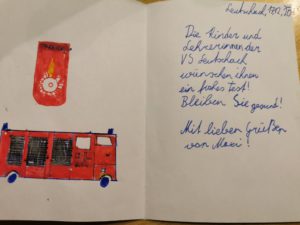 Leutschach,
Die Kinder und
Lehrerinnen der
VS Leutschach
wünschen ihnen
ein frohes Fest!
Bleiben Sie gesund!
Mit lieben Grüßen
von